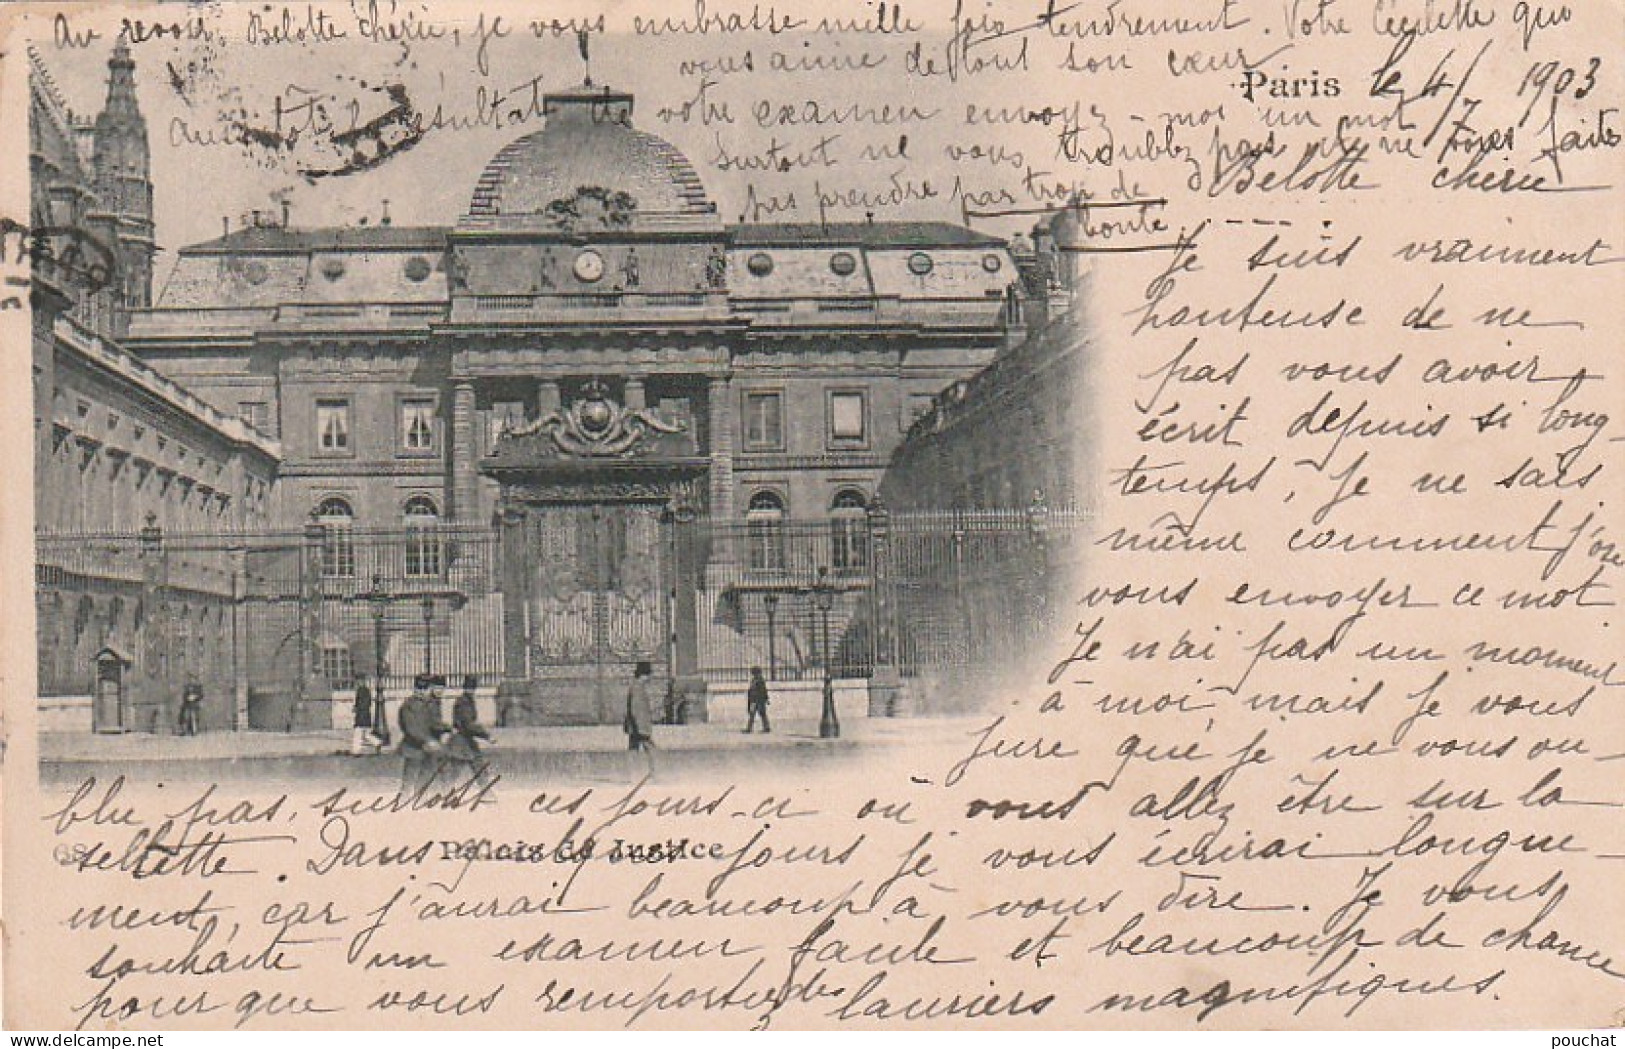 Paris le 4/7 1903
Belotte chérie
Je suis vraiment
honteuse de ne
pas vous avoir
écrit depuis si long-
temps, je ne sais
même comment j'ose
vous envoyer ce mot
Je n'ai pas un moment
à moi, mais je vous
jure que je ne vous ou-
blie pas, surtout ces jours-ci où vous allez être sur la
sellette. Dans quelques jours je vous écrirai longue-
68 Palais de Justice
ment, car j'aurai beaucoup à vous dire. Je vous
souhaite un examen facile et beaucoup de chance
pour que vous remportiez des lauriers magnifiques.
Au revoir, Belotte chérie, je vous embrasse mille fois tendrement. Votre Cécilette qui
vous aime de tout son cœur
Aussitôt le résultat de votre examen envoyez-moi un mot
surtout ne vous troublez pas et ne vous faites
pas prendre par trop de
honte
pouchat